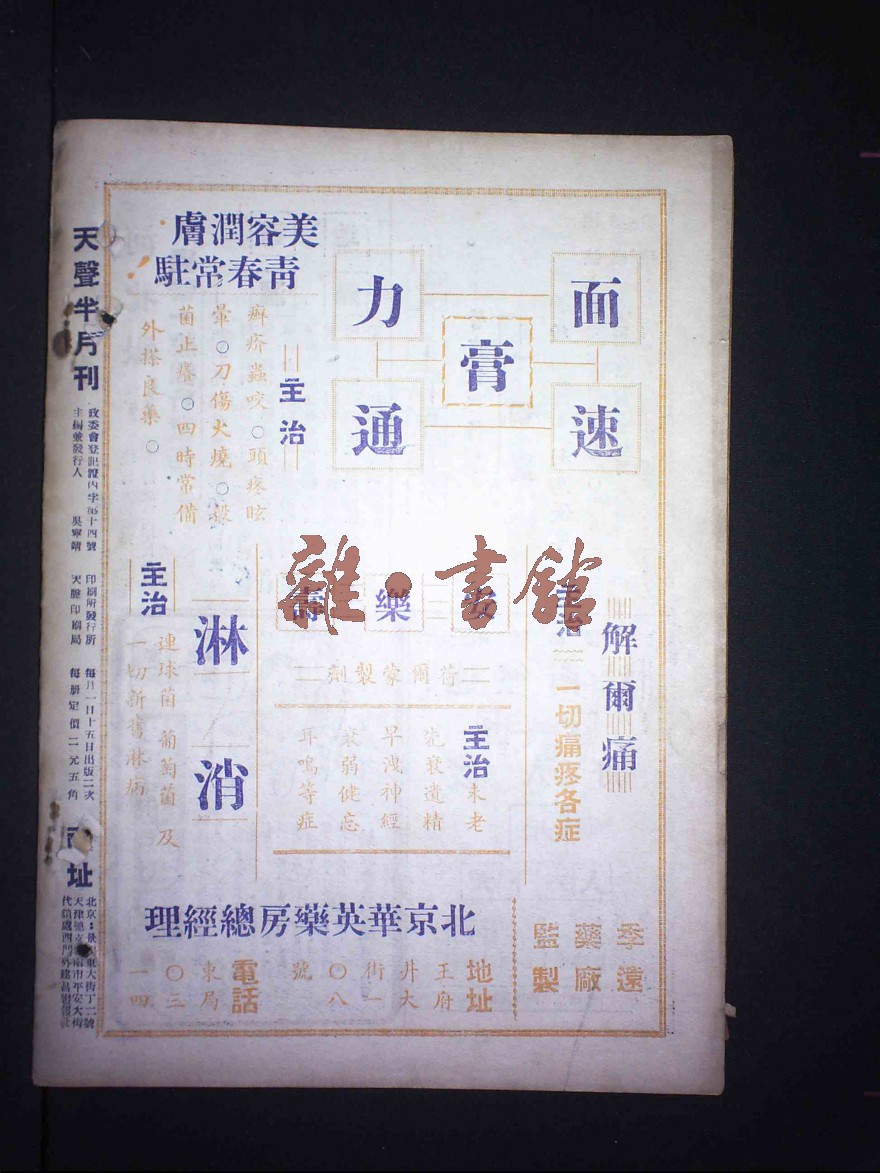 面速
力通
膏
美容潤膚
青春常駐！
主治
癬疥蟲咬。頭疼眩
暈。刀傷火燒。殺
菌止癢。四時常備
外搽良藥。
解爾痛
主治
一切痛疼各症
樂壽
荷爾蒙製劑
主治
未老
先衰遺精
早洩神經
衰弱健忘
耳鳴等症
淋消
主治
連球菌 葡萄菌 及
一切新舊淋病
季遠
藥廠
監製
北京華英藥房總經理
地址
王府
井大
街一
〇八
號
電話
東局
〇三
一四
天聲半月刊
政委會登記證內字第十四號
主編兼發行人 吳寧靖
印刷所發行所
天聲印刷局
每月一日十五日出版二次
每册定價二元五角
址
雜·書館